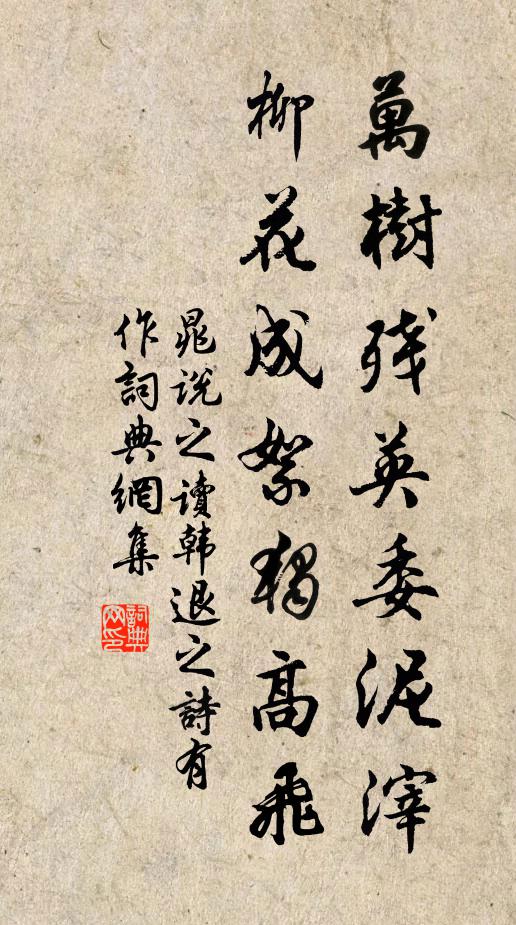 萬樹残英委泥滓
柳花成絮獨高飛
晁说之讀韩退之詩有
作詞典網集
詞典
网印